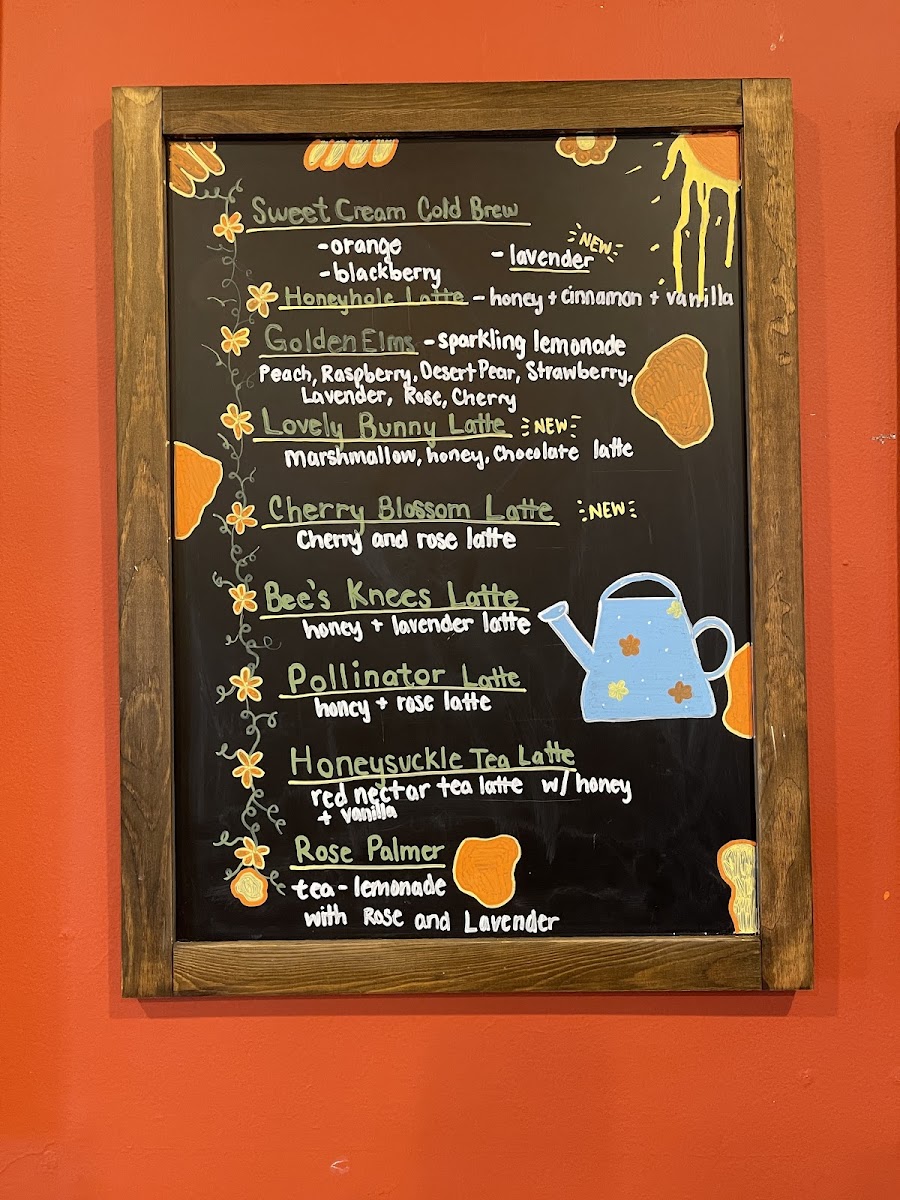 Sweet Cream Cold Brew
-orange
NEW
- lavender
-blackberry
Honeyhole Latte - honey + cinnamon + vanilla
Golden Elms - sparkling lemonade
Peach, Raspberry, Desert Pear, Strawberry,
Lavender, Rose, Cherry
Lovely Bunny Latte NEW
Marshmallow, honey, Chocolate latte
Cherry Blossom Latte NEW
Cherry and rose latte
Bee's Knees Latte
honey + lavender latte
Pollinator Latte
honey + rose latte
Honeysuckle Tea Latte
red nectar tea latte w/ honey
+ vanilla
Rose Palmer
tea - lemonade
with Rose and Lavender